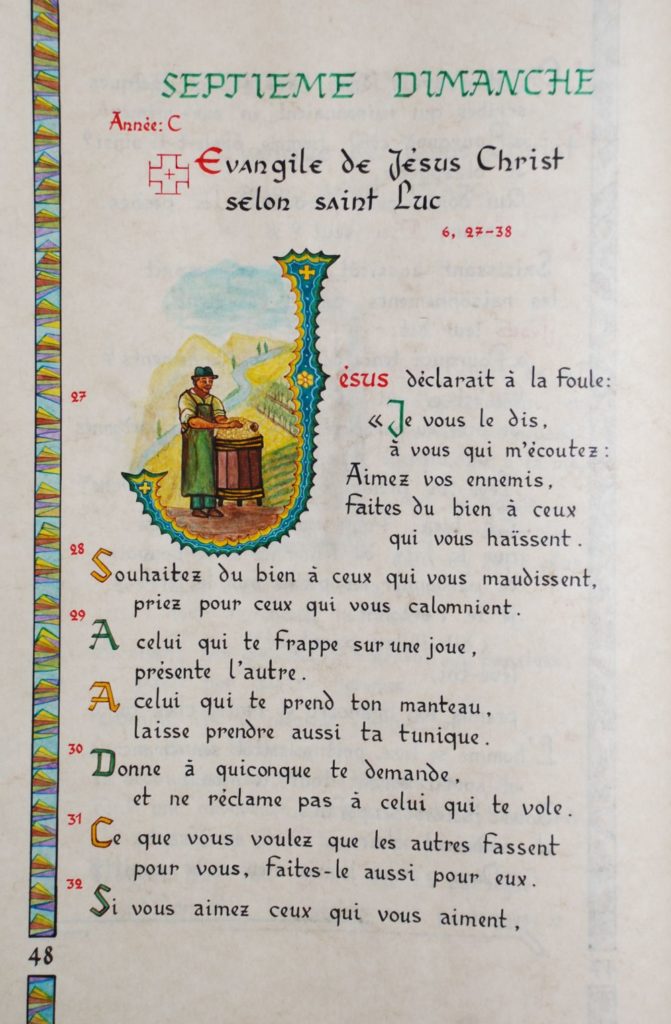 SEPTIEME DIMANCHE
Année: C
Evangile de Jésus Christ
selon saint Luc
6, 27-38
27
Jésus déclarait à la foule:
« Je vous le dis,
à vous qui m'écoutez:
Aimez vos ennemis,
faites du bien à ceux
qui vous haïssent.
28
Souhaitez du bien à ceux qui vous maudissent,
priez pour ceux qui vous calomnient.
29
A celui qui te frappe sur une joue,
présente l'autre.
A celui qui te prend ton manteau,
laisse prendre aussi ta tunique.
30
Donne à quiconque te demande,
et ne réclame pas à celui qui te vole.
31
Ce que vous voulez que les autres fassent
pour vous, faites-le aussi pour eux.
32
Si vous aimez ceux qui vous aiment,
48